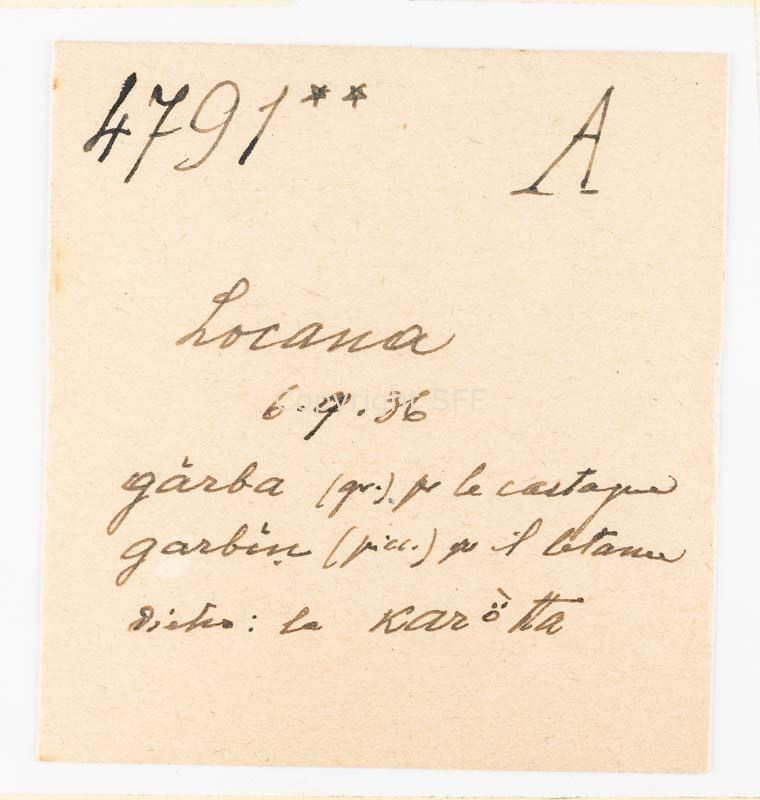 4791** A
Locana
6.9.36
gàrba (gr.) pr le castagne
garbíṇ (picc.) pr il letame
dietro: la karö̀tta
Copyright SFF